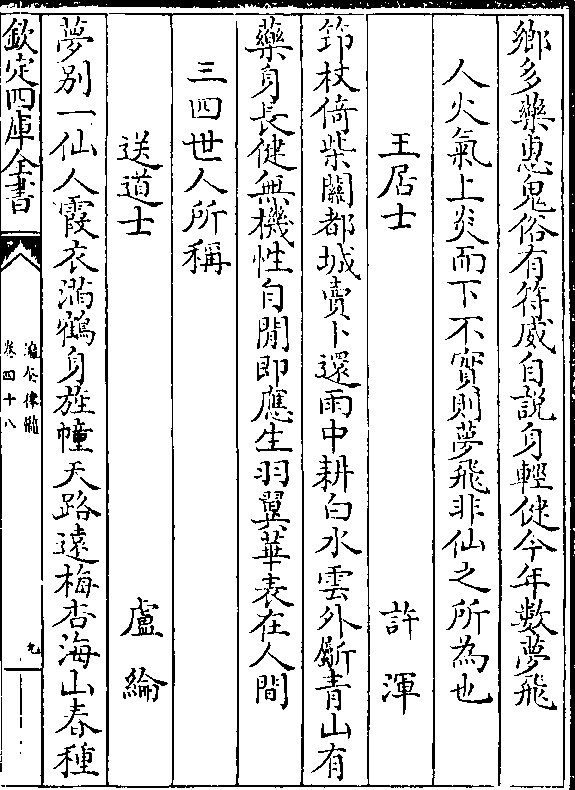 鄉多藥惠鬼俗有符威自說身輕健今年數夢飛
人火氣上炎而下不實則夢飛非仙之所為也
王居士 許渾
筇杖倚柴關都城賣卜還雨中耕白水雲外斸青山有
藥身長健無機性自閒即應生羽翼華表在人間
三四世人所稱
送道士 盧綸
夢別一仙人霞衣滿鶴身旌幢天路遠梅杏海山春種
欽定四庫全書
瀛奎律髓
卷四十八
九